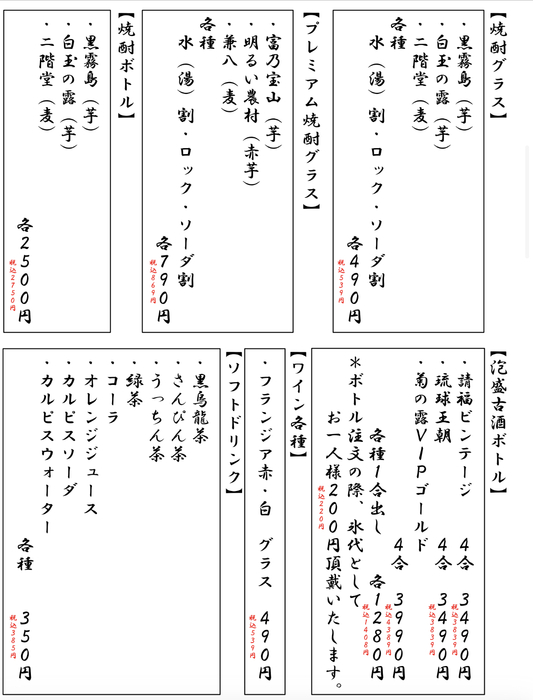 【焼酎グラス】
・黒霧島（芋）
・白玉の露（芋）
・二階堂（麦）
各種
水（湯）割・ロック・ソーダ割
各490円
税込539円
【プレミアム焼酎グラス】
・富乃宝山（芋）
・明るい農村（赤芋）
・兼八（麦）
各種
水（湯）割・ロック・ソーダ割
各790円
税込869円
【焼酎ボトル】
・黒霧島（芋）
・白玉の露（芋）
・二階堂（麦）
各2500円
税込2750円
【泡盛古酒ボトル】
・請福ビンテージ 4合 3490円
税込3839円
・琉球王朝 4合 3490円
税込3839円
・菊の露VIPゴールド
4合 3990円
税込4389円
各種1合出し 各1280円
税込1408円
＊ボトル注文の際、氷代として
お一人様200円頂戴いたします。
税込220円
【ワイン各種】
・フランジア赤・白 グラス 490円
税込539円
【ソフトドリンク】
・黒烏龍茶
・さんぴん茶
・うっちん茶
・緑茶
・コーラ
・オレンジジュース
・カルピスソーダ
・カルピスウォーター
各種 350円
税込385円